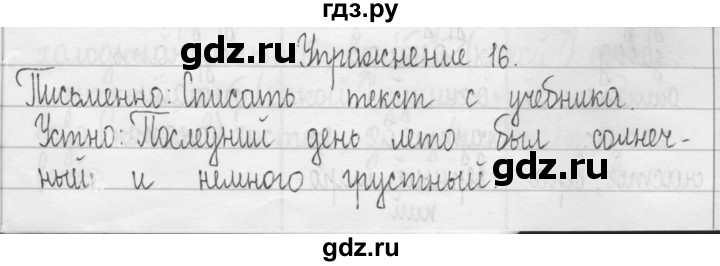 гдз.ру
gdz.ru
Упражнение 16.
gdz.ru
Письменно: Списать текст с учебника.
Устно: Последний день лето был солнеч-
ный и немного грустный.
gdz.ru
gdz.ru